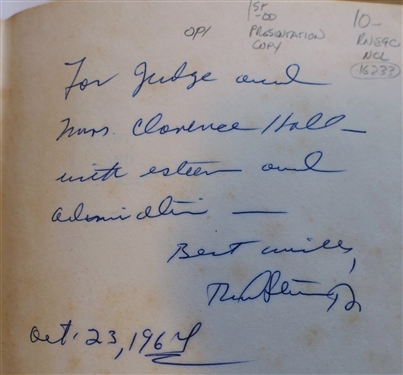 1ST
-OD
PRESENTATION
COPY
OP/
10-
NCL
16233
For Judge and
Mrs. Clarence Hall -
with esteem and
admiration —
Best wishes,
Oct. 23, 1964